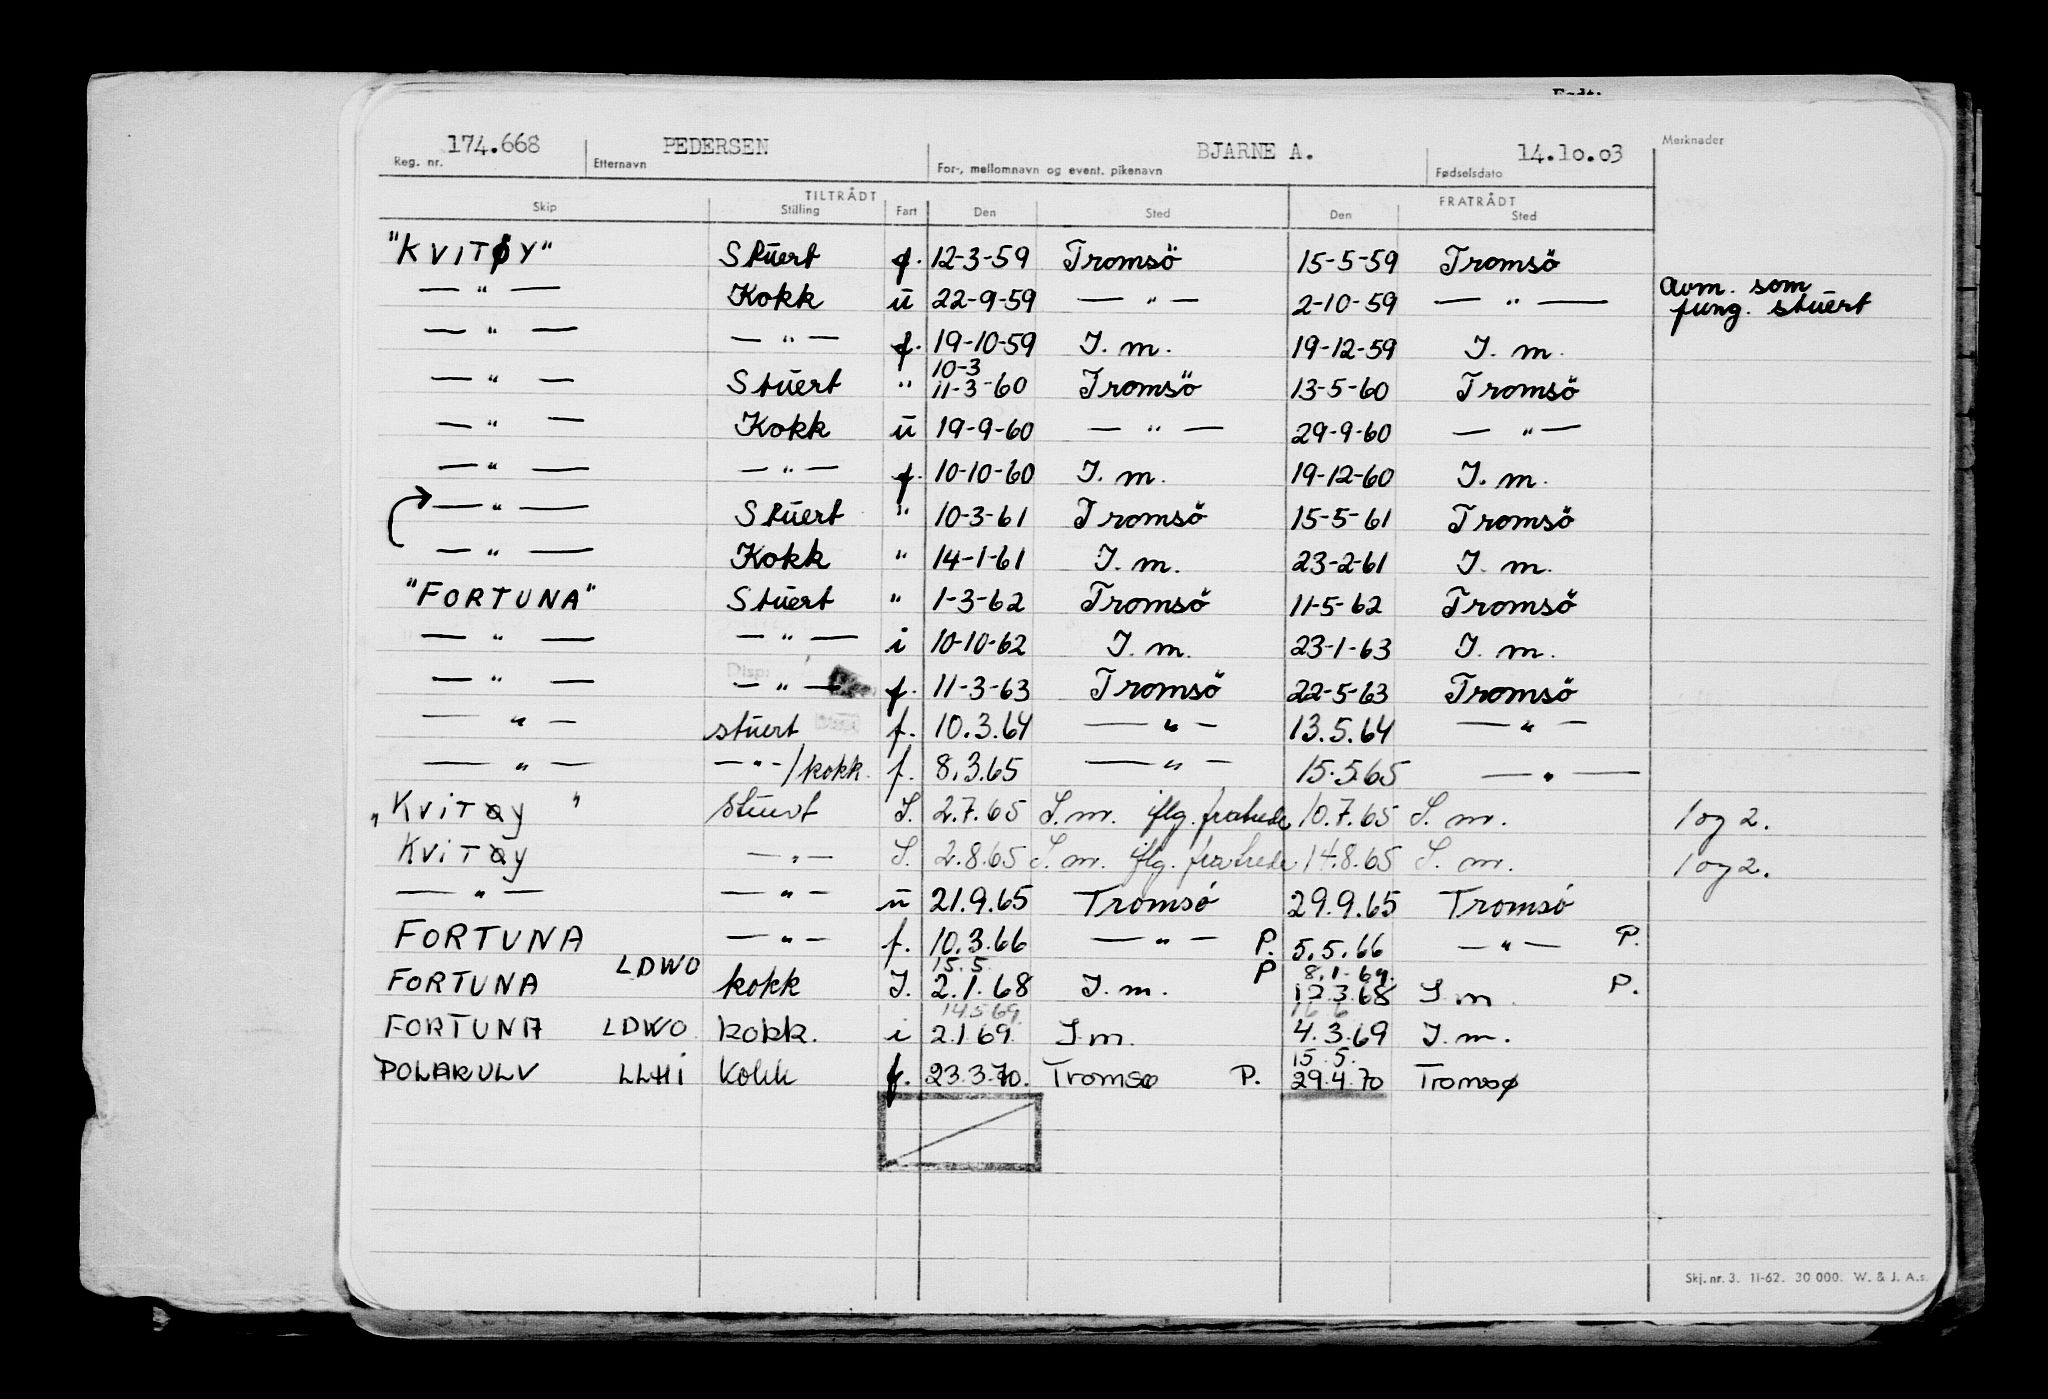 Reg. nr. 174.668 Etternavn PEDERSEN For-, mellomnavn og event. pikenavn BJARNE A. Fødselsdato 14.10.03 Merknader
TILTRÅDT FRATRÅDT
Skip Stilling Fart Den Sted Den Sted
"KVITØY" Stuert f. 12-3-59 Tromsö 15-5-59 Tromsö
— " — Kokk u 22-9-59 — " — 2-10-59 — " — avm. som fung. stuert
— " — — " — f. 19-10-59 I. m. 19-12-59 I. m.
10-3
— " — Stuert " 11-3-60 Tromsö 13-5-60 Tromsö
— " — Kokk u 19-9-60 — " — 29-9-60 — " —
— " — — " — f. 10-10-60 I. m. 19-12-60 I. m.
— " — Stuert " 10-3-61 Tromsö 15-5-61 Tromsö
— " — Kokk " 14-1-61 I. m. 23-2-61 I. m.
"FORTUNA" Stuert " 1-3-62 Tromsö 11-5-62 Tromsö
— " — — " — i 10-10-62 I. m. 23-1-63 I. m.
— " — — " — f. 11-3-63 Tromsö 22-5-63 Tromsö
— " — stuert f. 10.3.64 — " — 13.5.64 — " —
— " — — " — / kokk. f. 8.3.65 — " — 15.5.65 — " —
"KVITØY" Stuert I. 2.7.65 I.m. iflg. fratrede 10.7.65 I. m. 1 og 2.
KVITØY — " — I. 2.8.65 I.m. iflg. fratrede 14.8.65 I. m. 1 og 2.
— " — — " — u 21.9.65 Tromsö 29.9.65 Tromsö
FORTUNA — " — f. 10.3.66 — " — P. 5.5.66 — " — P.
LDWO 15.5. P 8.1.69.
FORTUNA kokk I. 2.1.68 I.m. 12.3.68 I m. P.
14.5.69. 16 6
FORTUNA LDWO kokk. i 2.1.69. I.m. 4.3.69 I.m.
15.5.
POLARULV LLHI Kokk f. 23.3.70. Tromsø P. 29.4.70 Tromsø
Skj. nr. 3. 11-62. 30 000. W. & J. A.s.